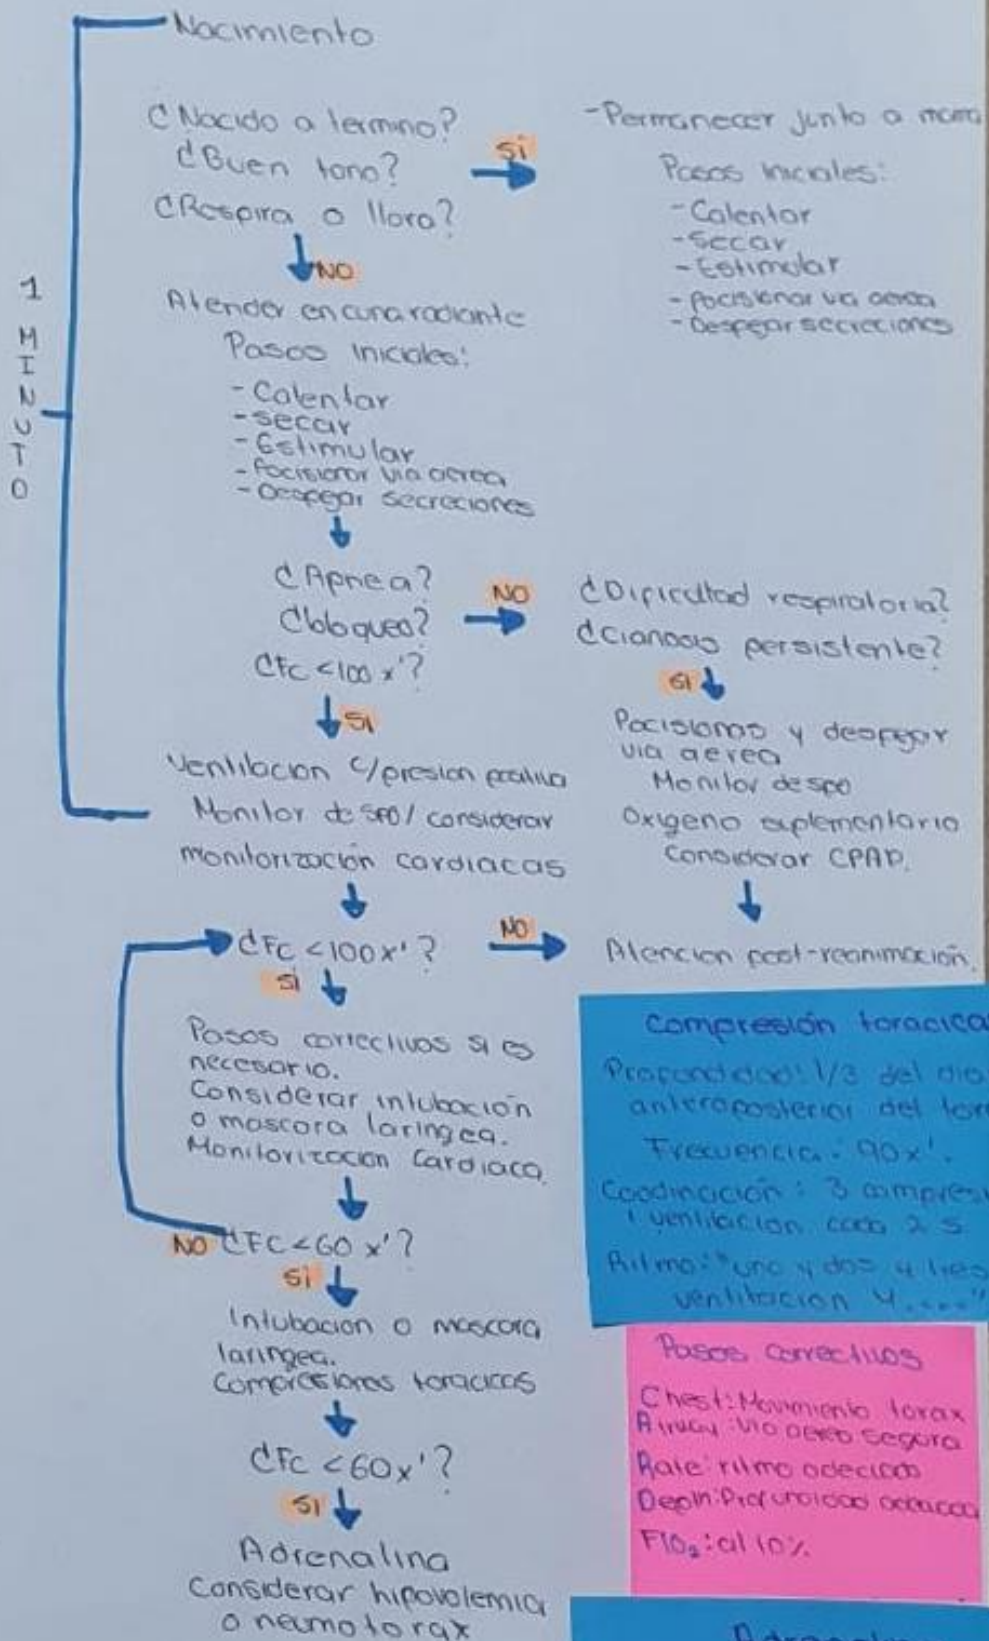 Nacimiento
¿Nacido a termino?
¿Buen tono?
¿Respira o llora?
SI
-Permanecer junto a mama
Pasos iniciales:
-Calentar
-Secar
-Estimular
-Pocisionar via aerea
-Despejar secreciones
NO
1 MINUTO
Atender en cuna radiante
Pasos iniciales:
-Calentar
-secar
-Estimular
-Pocisionar via aerea
-Despejar secreciones
¿Apnea?
¿bloqueo?
¿Fc <100 x'?
NO
¿Dificultad respiratoria?
¿Cianosis persistente?
SI
Pocisionas y despejar
via aerea
Monitor de spo
Oxigeno suplementario
Considerar CPAP.
SI
Ventilacion c/presion positiva
Monitor de SPO/ considerar
monitorización cardiacas
¿Fc <100x'?
NO
Atencion post-reanimación.
SI
Pasos correctivos si es
necesario.
Considerar intubación
o mascara laringea.
Monitorizacion Cardiaca.
NO ¿FC<60 x'?
SI
Intubacion o mascara
laringea.
Compresiones toracicas
¿Fc <60x'?
SI
Adrenalina
Considerar hipovolemia
o neumotorax
Compresión toracica
Profundidad: 1/3 del
anteroposterior del
Frecuencia: 90x'.
Coodinación: 3
1 ventilacion cada 2 s
Ritmo: "uno y dos y tres
ventilacion y ...."
Pasos correctivos
Chest: Movimiento torax
Airway: Via aerea segura
Rate: ritmo adecuado
Depth: Profundidad adecuada
FIO₂: al 10%